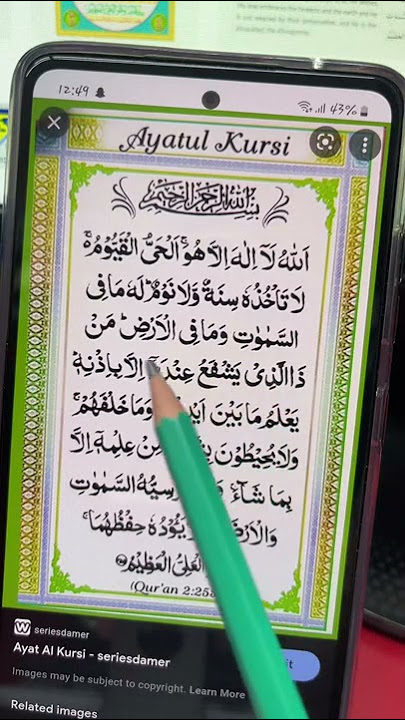 12:49
43%
Ayatul Kursi
بِسْمِ اللهِ الرَّحْمٰنِ الرَّحِيْمِ
اَللهُ لَآ اِلٰهَ اِلَّا هُوَۚ اَلْحَيُّ الْقَيُّوْمُ ۚ
لَا تَاْخُذُهٗ سِنَةٌ وَّلَا نَوْمٌؕ لَهٗ مَا فِي
السَّمٰوٰتِ وَمَا فِي الْاَرْضِؕ مَنْ
ذَا الَّذِيْ يَشْفَعُ عِنْدَهٗٓ اِلَّا بِاِذْنِهٖؕ
يَعْلَمُ مَا بَيْنَ وَمَا خَلْفَهُمْۚ
وَلَا يُحِيْطُوْنَ مِّنْ عِلْمِهٖٓ اِلَّا
بِمَا شَآءَۚ السَّمٰوٰتِ
وَالْاَرْضَۚ يَئُوْدُهٗ حِفْظُهُمَاۚ
الْعَلِيُّ الْعَظِيْمُ
(Qur'an 2:25
seriesdamer
Ayat Al Kursi - seriesdamer
Images may be subject to copyright. Learn More
Related images